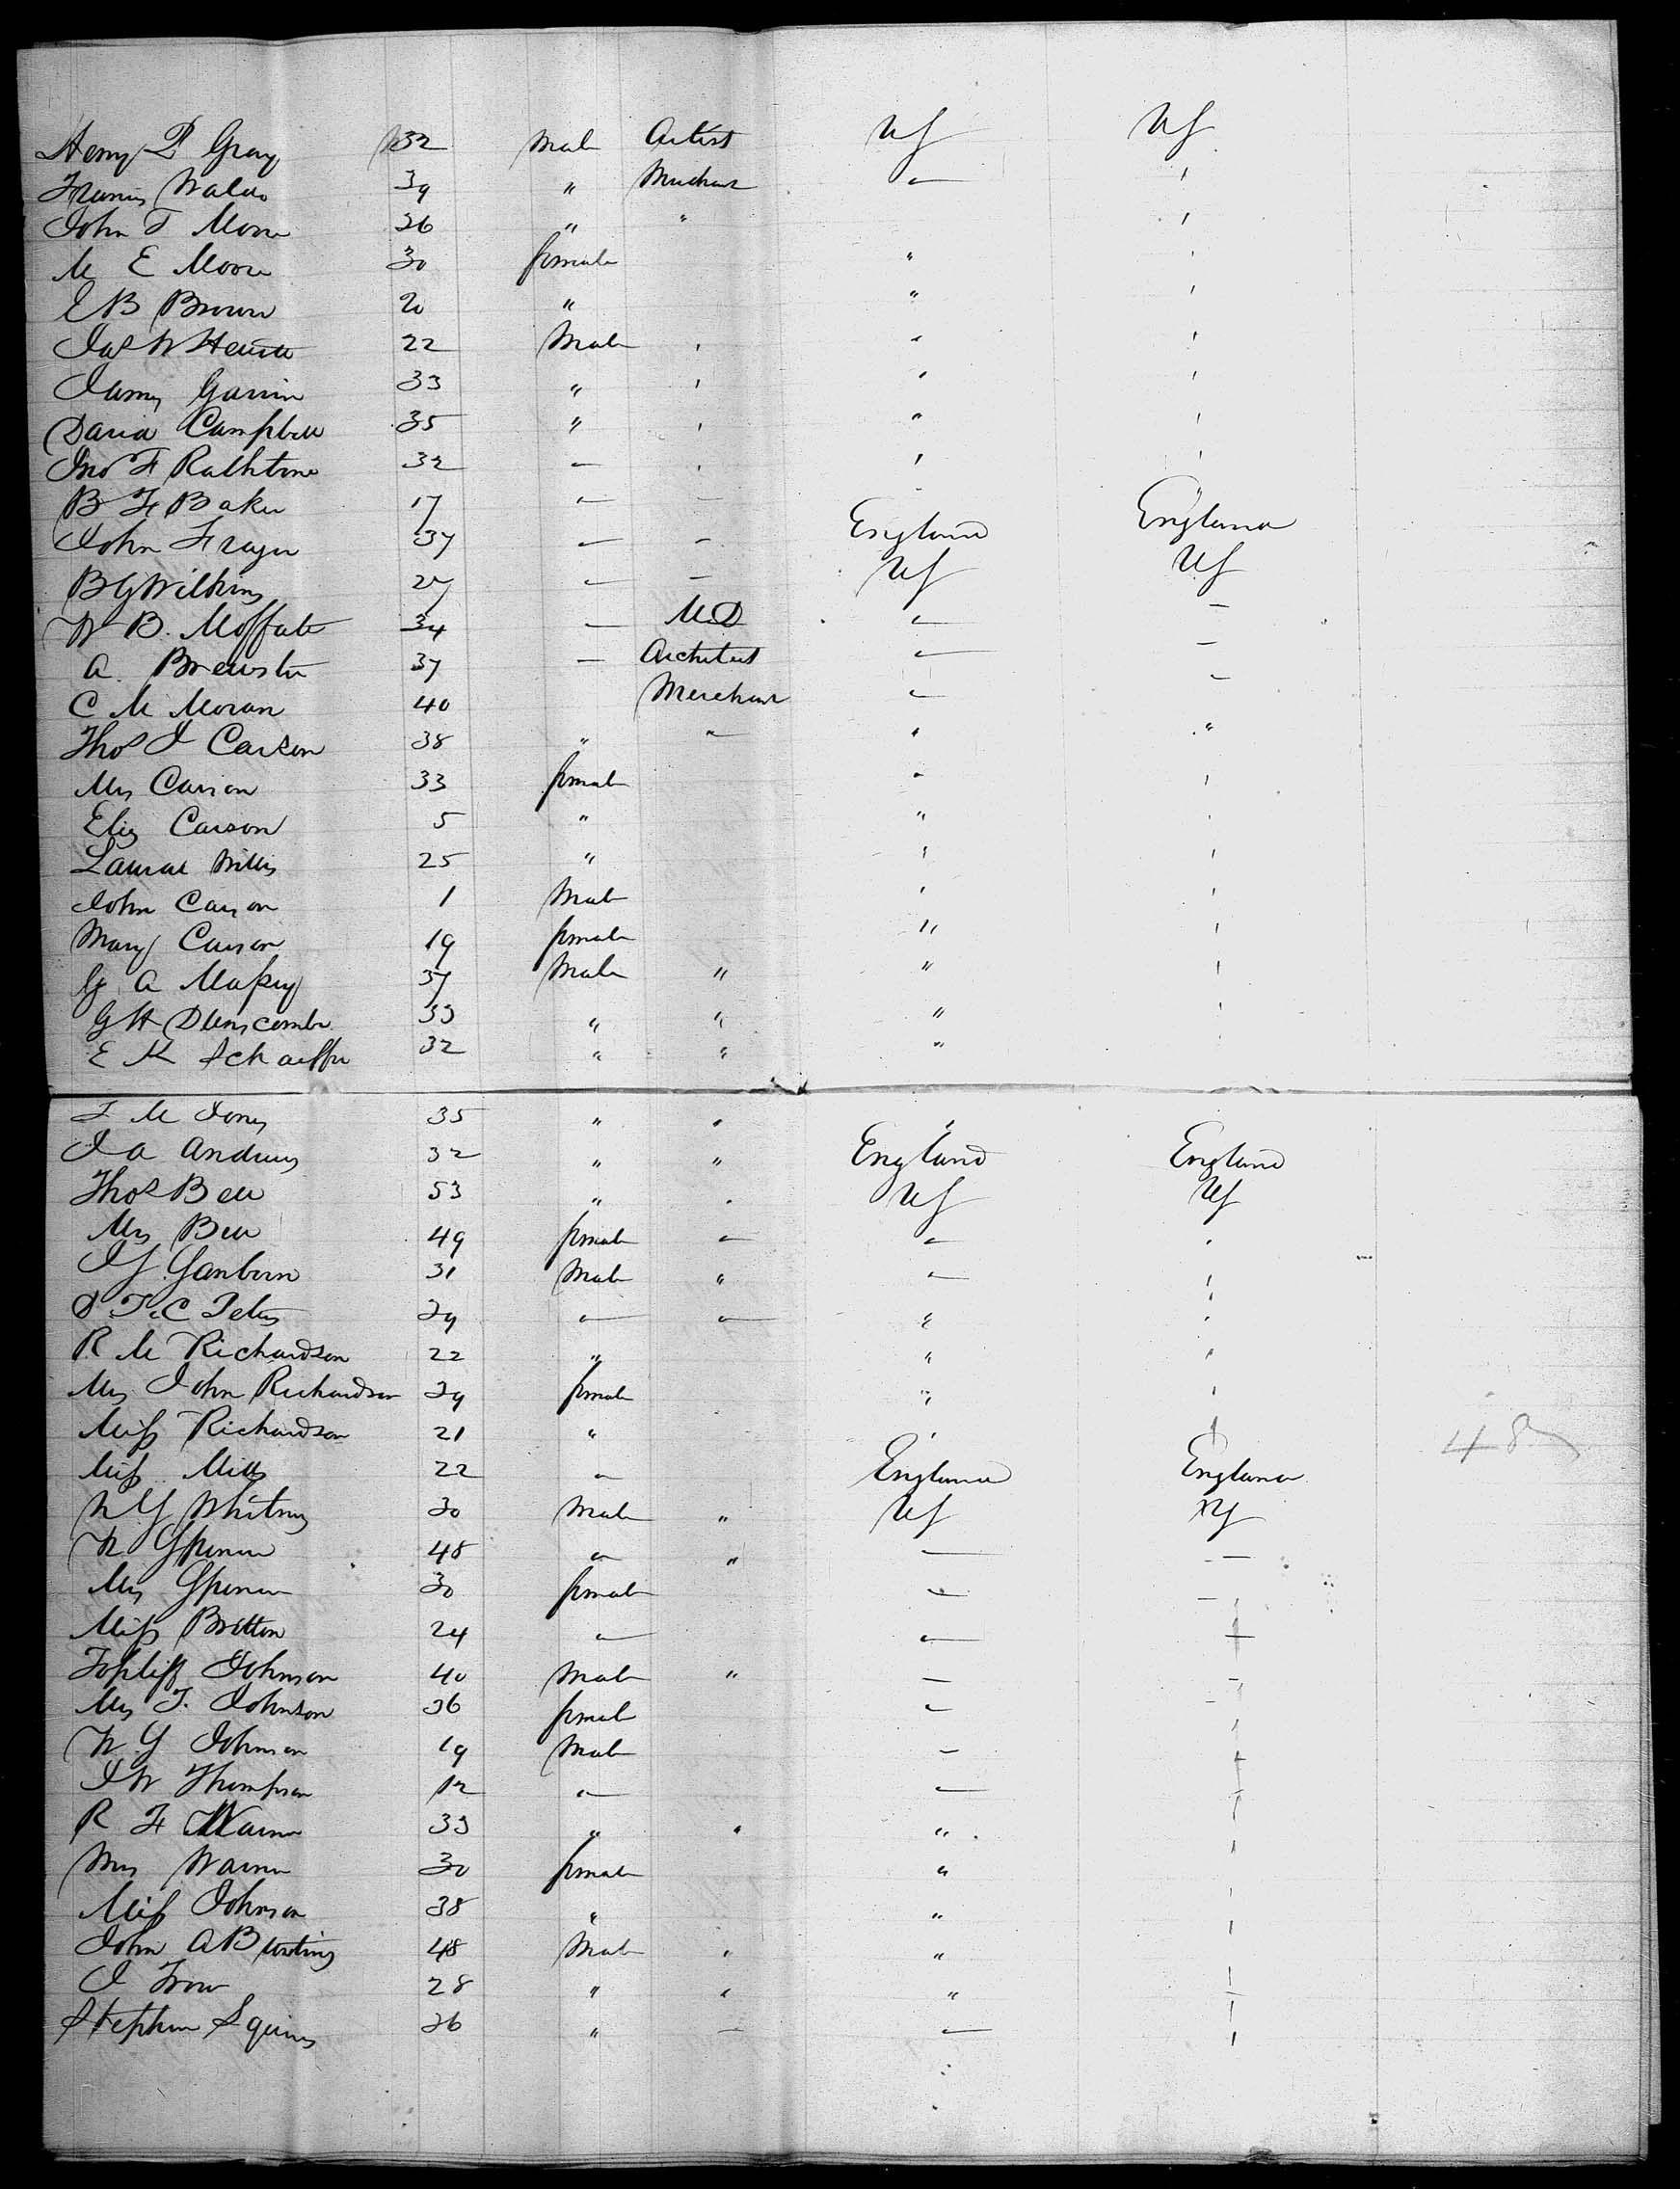 Henry P Gray 32 Male Artist US US
Francis Waldo 39 " Merchant " "
John T Moore 36 " " "
M E Moore 30 female " "
E B Brown 20 " " "
Jas W 22 Male " " "
James Garvin 33 " " " "
David Campbell 35 " " " "
Jno F Rathbone 32 " " " "
B F Baker 17 " " "
John Frazer 37 " " England England
B G Wilkins 27 " " US US
W B. Moffate 34 " M.D " "
A. Brewster 37 " Architect " "
C M Moran 40 Merchant " "
Thos J Carson 38 " " " "
Mrs Carson 33 female " "
Eliz Carson 5 " " "
Laurae Willis 25 " " "
John Carson 1 Male " "
Mary Carson 19 female " "
G A Massey 37 Male " " "
G H Dunscombe 33 " " " "
E K Schaeffer 32 " " " "
T M Jones 35 " " "
J A Andrews 32 " " England England
Thos Bell 53 " " US US
Mrs Bell 49 female " " "
J S Sanborn 31 Male " " "
T. C Peters 39 " " " "
R M Richardson 22 " " "
Mrs John Richardson 29 female " "
Miss Richardson 21 " " "
Miss Mills 22 " England England
N Y Whitney 30 Male " US US
W Spencer 48 " " " "
Mrs Spencer 30 female " "
Miss Britton 24 " " "
Topliff Johnson 40 Male " " "
Mrs T. Johnson 36 female " "
W Y Johnson 19 Male " "
J W Thompson 12 " " "
R F Warner 33 " " " "
Mrs Warner 30 female " "
Miss Johnson 38 " " "
John A Bunting 48 Male " " "
J Trow 28 " " " "
Stephen Squires 36 " " " "
48